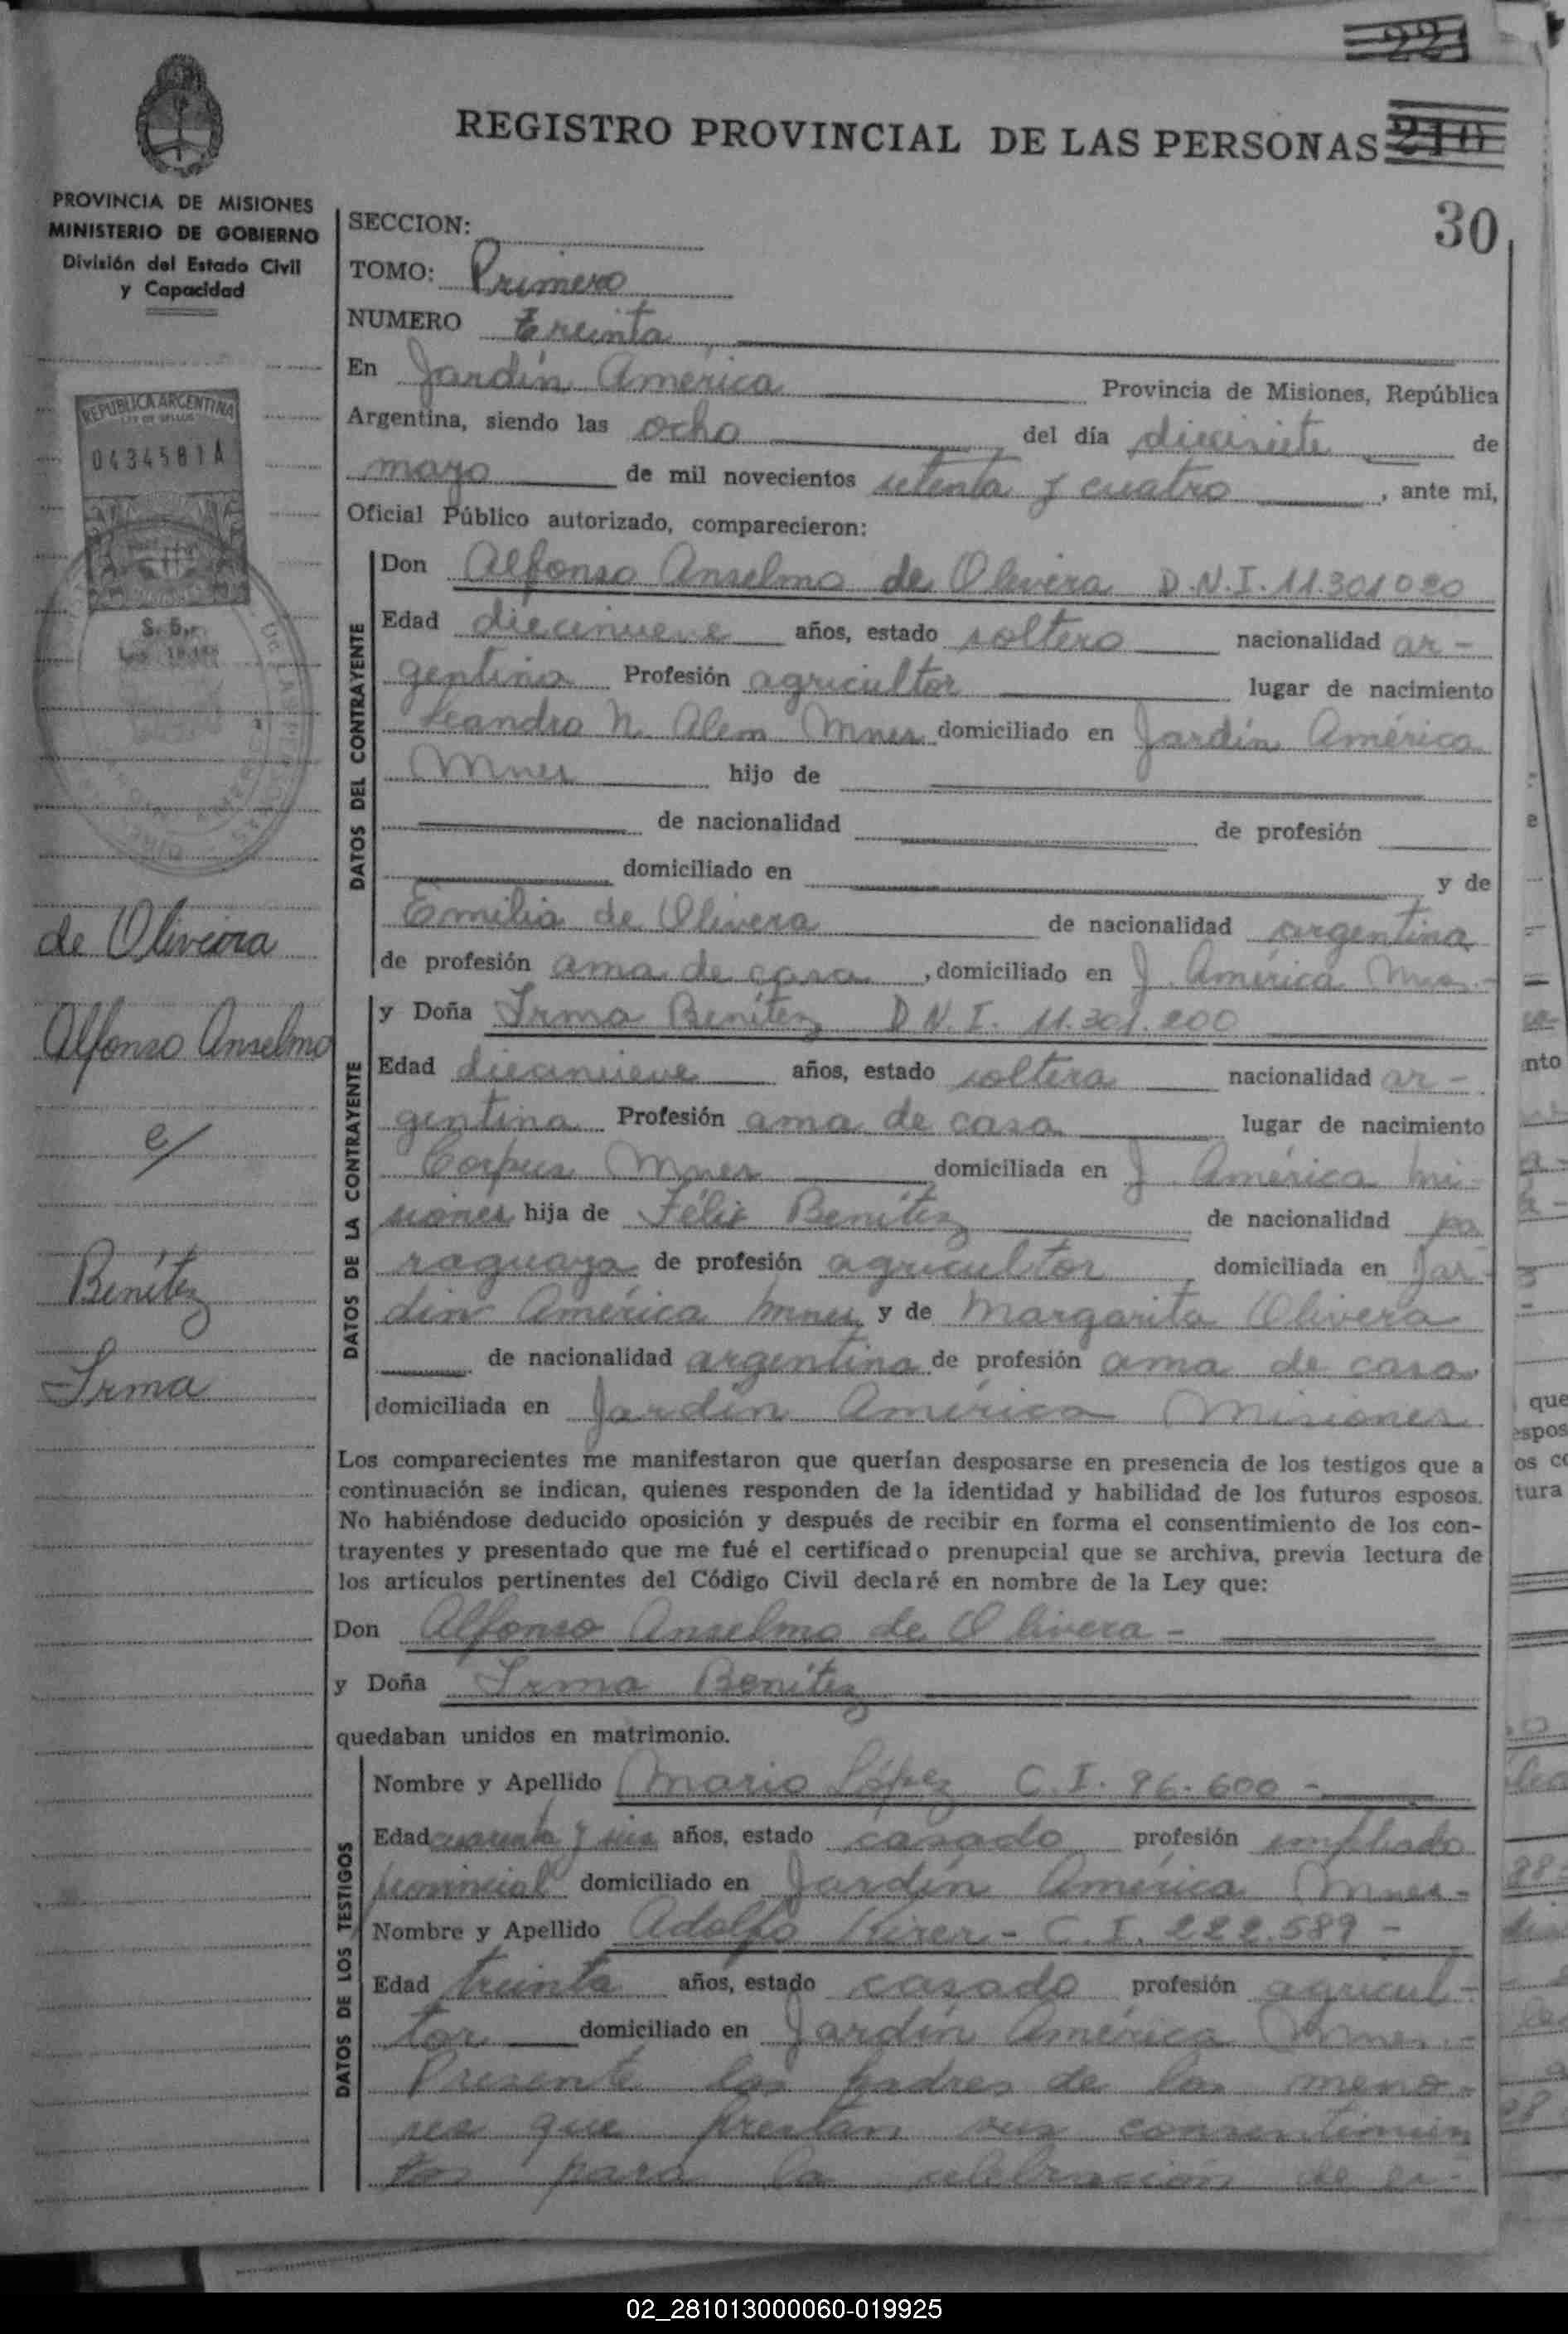 221
REGISTRO PROVINCIAL DE LAS PERSONAS 210
30
PROVINCIA DE MISIONES
MINISTERIO DE GOBIERNO
División del Estado Civil
y Capacidad
REPUBLICA ARGENTINA
LEY DE SELLOS
0434581A
de Oliveira
Alfonso Anselmo
e/
Benítez
Irma
SECCION:
TOMO: Primero
NUMERO treinta
En Jardín América Provincia de Misiones, República
Argentina, siendo las ocho del día diecisiete de
mayo de mil novecientos setenta y cuatro, ante mi,
Oficial Público autorizado, comparecieron:
DATOS DEL CONTRAYENTE
Don Alfonso Anselmo de Olivera D.N.I. 11.301.020
Edad diecinueve años, estado soltero nacionalidad ar-
gentina Profesión agricultor lugar de nacimiento
Leandro N. Alem Mnes domiciliado en Jardín América
Mnes hijo de
de nacionalidad de profesión
domiciliado en y de
Emilia de Olivera de nacionalidad argentina
de profesión ama de casa, domiciliado en J. América Mnes.-
DATOS DE LA CONTRAYENTE
y Doña Irma Benítez D.N.I. 11.301.200
Edad diecinueve años, estado soltera nacionalidad ar-
gentina Profesión ama de casa lugar de nacimiento
Corpus Mnes domiciliada en J. América Mi-
siones hija de Félix Benítez de nacionalidad pa
raguaya de profesión agricultor, domiciliada en Jar-
dín América Mnes y de Margarita Olivera
de nacionalidad argentina de profesión ama de casa
domiciliada en Jardín América Misiones
Los comparecientes me manifestaron que querían desposarse en presencia de los testigos que a
continuación se indican, quienes responden de la identidad y habilidad de los futuros esposos.
No habiéndose deducido oposición y después de recibir en forma el consentimiento de los con-
trayentes y presentado que me fué el certificado prenupcial que se archiva, previa lectura de
los artículos pertinentes del Código Civil declaré en nombre de la Ley que:
Don Alfonso Anselmo de Olivera -
y Doña Irma Benítez
quedaban unidos en matrimonio.
DATOS DE LOS TESTIGOS
Nombre y Apellido Mario López C.I. 96.600 -
Edad cuarenta y seis años, estado casado profesión empleado
provincial domiciliado en Jardín América Mnes-
Nombre y Apellido Adolfo - C.I. 222.589 -
Edad treinta años, estado casado profesión agricul-
tor domiciliado en Jardín América Mnes.-
Presente los padres de los meno-
res que prestan sus consentimien
tos para la celebración de es-
02_281013000060-019925